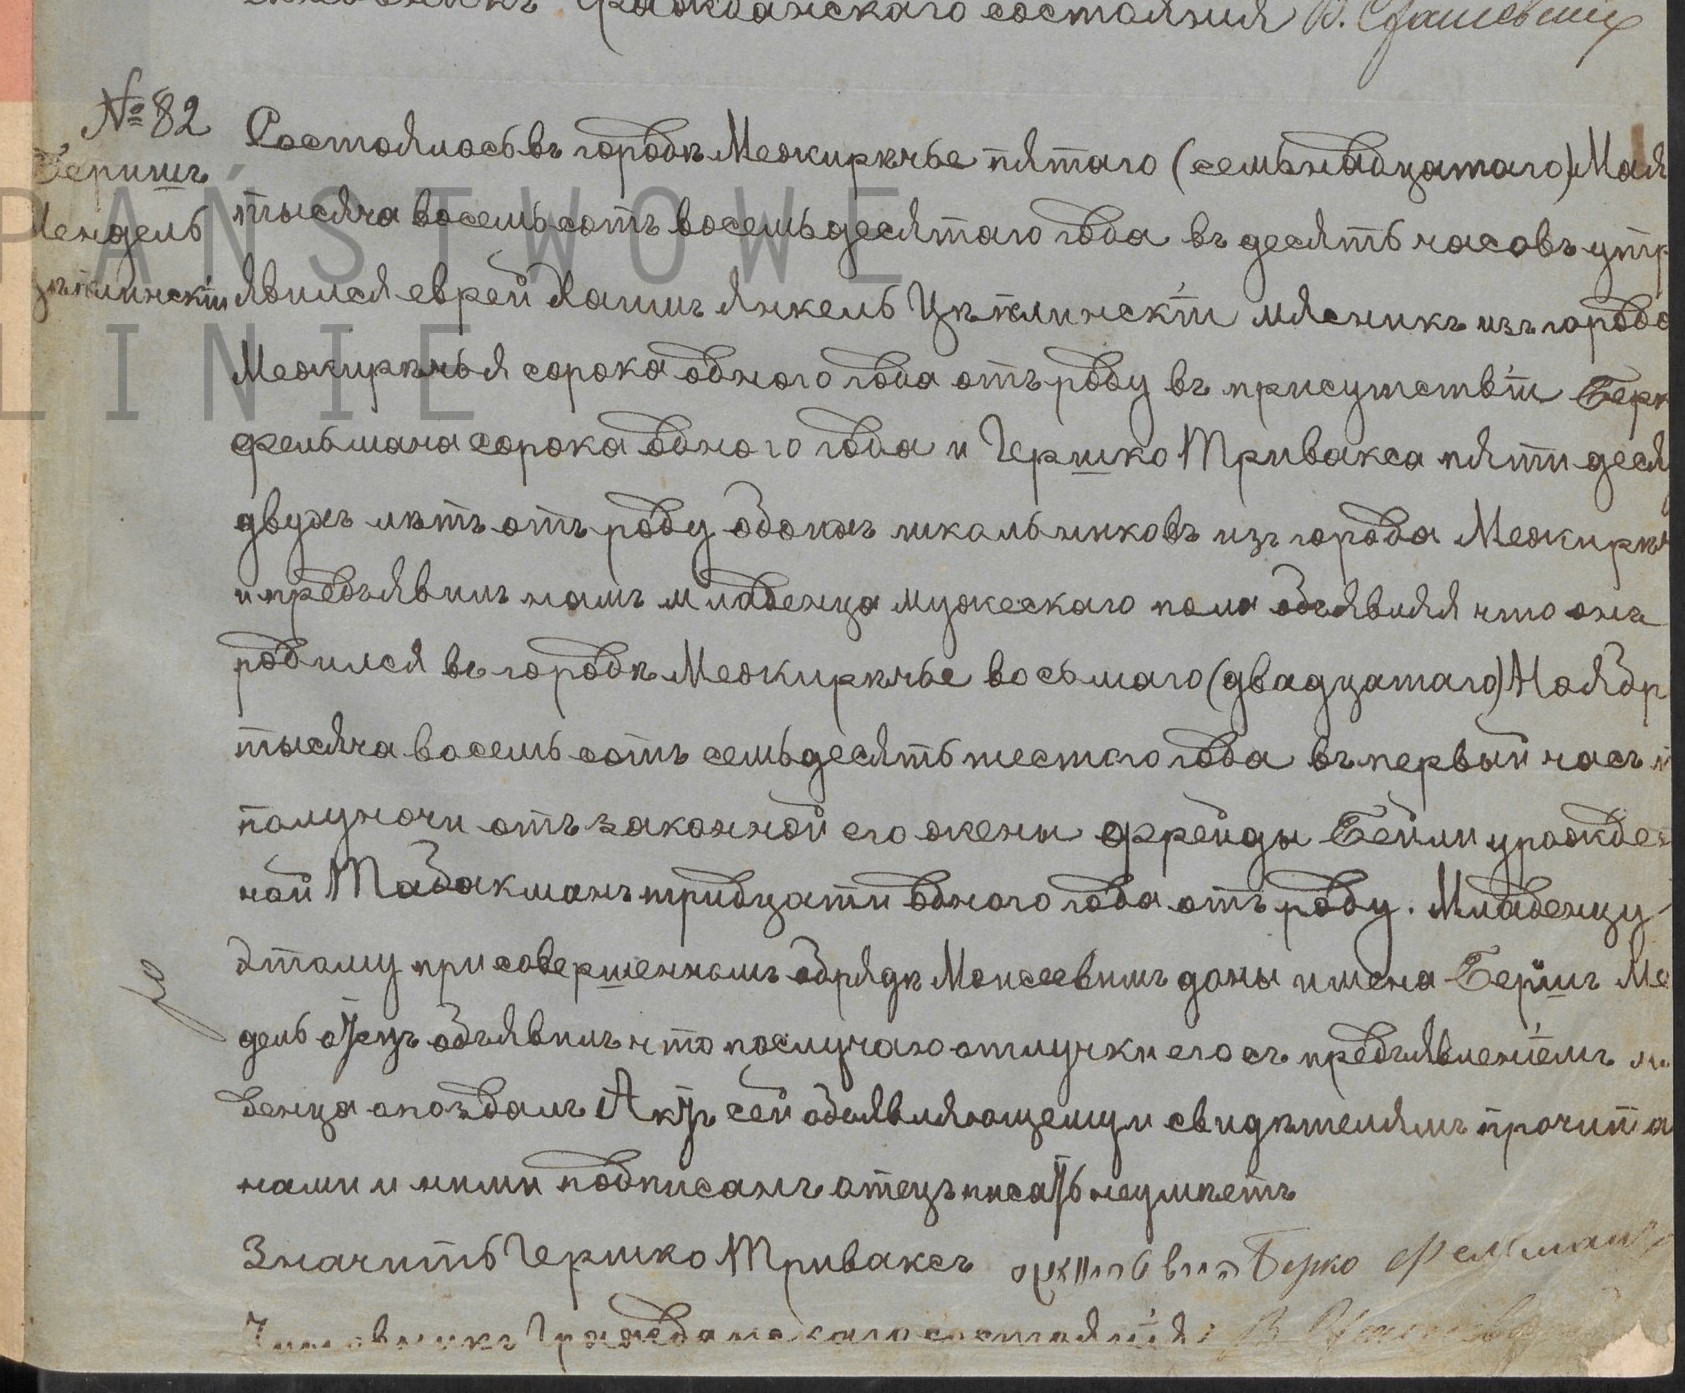 гражданскаго состоянія
№ 82
Беришъ
Мендель
Цѣплинскій
PAŃSTWOWE
LINIE
Состоялось въ городѣ Межирѣчье пятаго (семьнадцатаго) Мая
тысяча восемьсотъ восемьдесятаго года въ десять часовъ утр
явился еврей Хаимъ Янкель Цѣплинскій мясникъ изъ города
Межирѣчья сорока одного года отъ роду въ присутствіи Берк
Фельмана сорока одного года и Гершко Тривакса пятидеся
двухъ лѣтъ отъ роду обоихъ школьниковъ изъ города Межирѣч
и предъявилъ намъ младенца мужескаго пола объявляя что онъ
родился въ городѣ Межирѣчье восьмаго (двадцатаго) Ноябр
тысяча восемьсотъ семьдесятъ шестого года въ первый часъ п
полуночи отъ законной его жены Фрейды Бейли урожден
ной Табакманъ тридцати одного года отъ роду. Младенцу
этому при совершенномъ обрядѣ Моисеевимъ даны имена Беришъ Ме
дель отецъ объявилъ что послучаю отлучки его съ предъявленіемъ мла
денца опоздалъ Актъ сей объявляющему и свидѣтелямъ прочита
нами и ними подписанъ отецъ писать неумѣетъ
Значитъ Гершко Триваксъ Берко Фельманъ
Чиновникъ Гражданскаго состоянія: